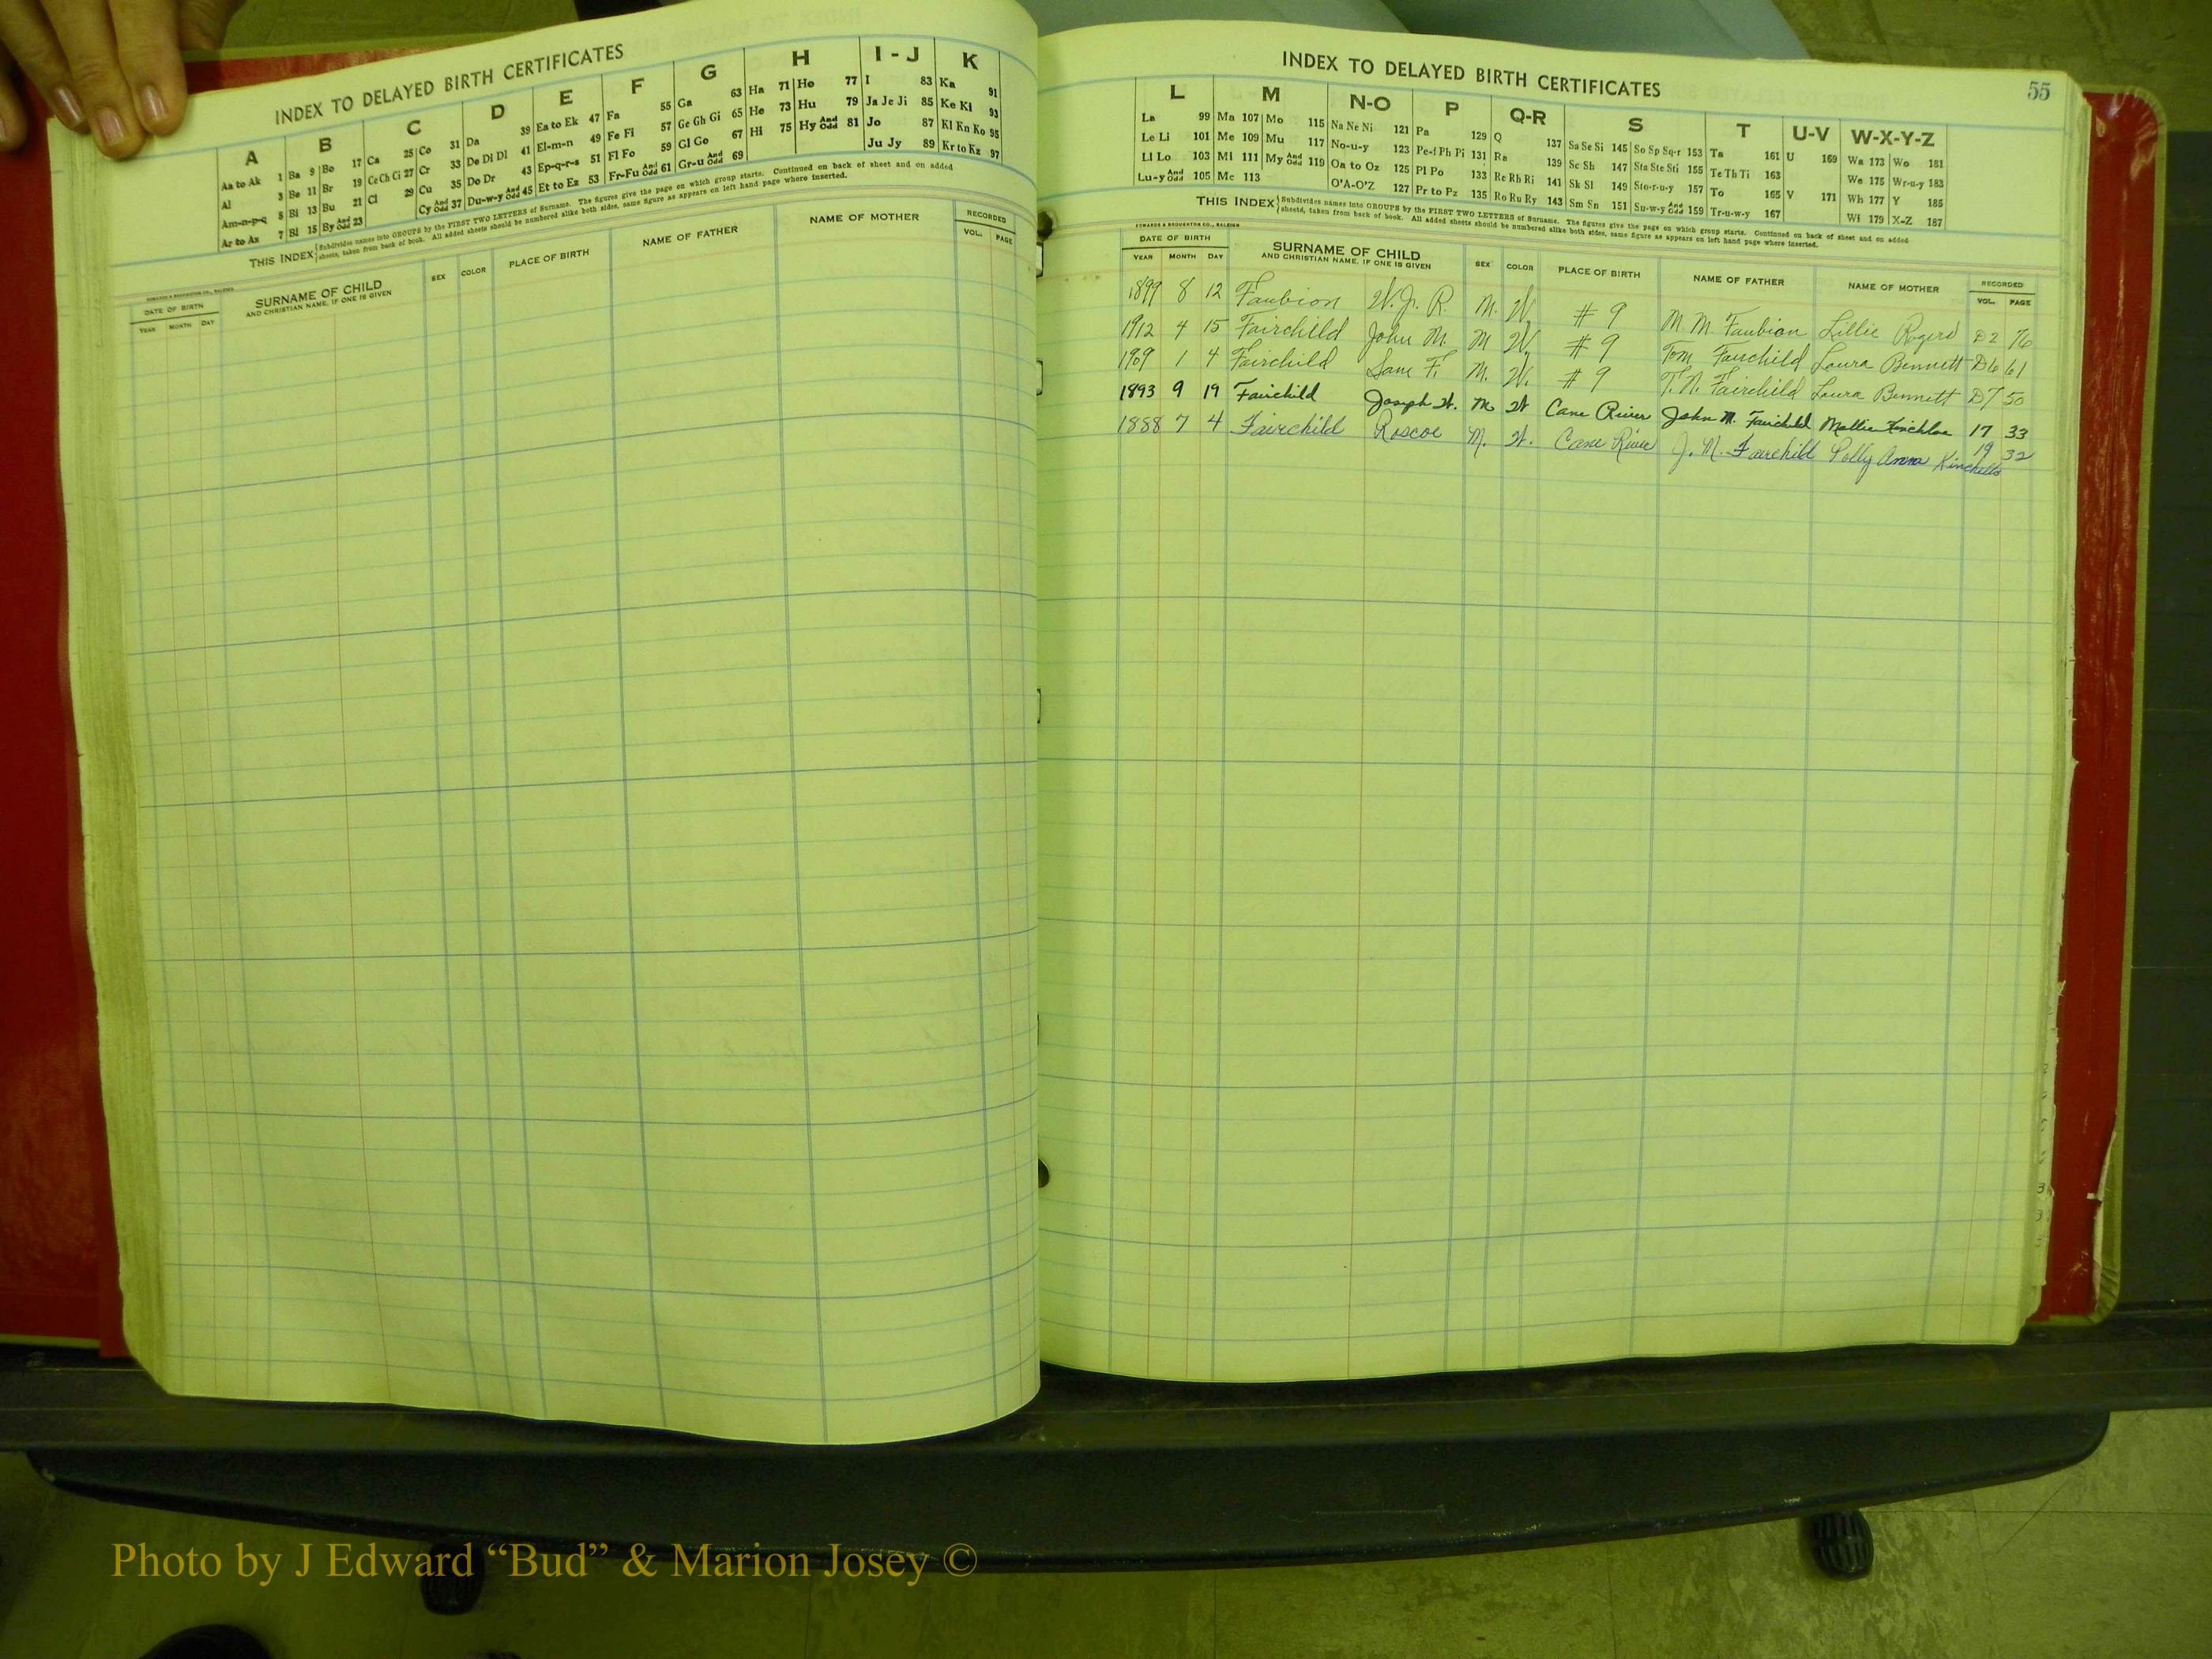 INDEX TO DELAYED BIRTH CERTIFICATES
A B C D E F G H I - J K
Aa to Ak 1 Ba 9 Bo 17 Ca 25 Co 31 Da 39 Ea to Ek 47 Fa 55 Ga 63 Ha 71 Ho 77 I 83 Ka 91
Al 3 Be 11 Br 19 Ce Ch Ci 27 Cr 33 De Di Dl 41 El-m-n 49 Fe Fi 57 Ge Gh Gi 65 He 73 Hu 79 Ja Je Ji 85 Ke Ki 93
Am-n-p-q 5 Bi 13 Bu 21 Cl 29 Cu 35 Do Dr 43 Ep-q-r-s 51 Fl Fo 59 Gl Go 67 Hi 75 Hy And Odd 81 Jo 87 Kl Kn Ko 95
Ar to Az 7 Bl 15 By And Odd 23 Cy And Odd 37 Du-w-y And Odd 45 Et to Ez 53 Fr-Fu And Odd 61 Gr-u And Odd 69 Ju Jy 89 Kr to Kz 97
THIS INDEX Subdivides names into GROUPS by the FIRST TWO LETTERS of Surname. The figures give the page on which group starts. Continued on back of sheet and on added
sheets, taken from back of book. All added sheets should be numbered alike both sides, same figure as appears on left hand page where inserted.
EDWARDS & BROUGHTON CO., RALEIGH
DATE OF BIRTH SURNAME OF CHILD SEX COLOR PLACE OF BIRTH NAME OF FATHER NAME OF MOTHER RECORDED
YEAR MONTH DAY AND CHRISTIAN NAME, IF ONE IS GIVEN VOL. PAGE
INDEX TO DELAYED BIRTH CERTIFICATES 55
L M N-O P Q-R S T U-V W-X-Y-Z
La 99 Ma 107 Mo 115 Na Ne Ni 121 Pa 129 Q 137 Sa Se Si 145 So Sp Sq-r 153 Ta 161 U 169 Wa 173 Wo 181
Le Li 101 Me 109 Mu 117 No-u-y 123 Pe-f Ph Pi 131 Ra 139 Sc Sh 147 Sta Ste Sti 155 Te Th Ti 163 We 175 Wr-u-y 183
Ll Lo 103 Mi 111 My And Odd 119 Oa to Oz 125 Pl Po 133 Re Rh Ri 141 Sk Sl 149 Sto-r-u-y 157 To 165 V 171 Wh 177 Y 185
Lu-y And Odd 105 Mc 113 O'A-O'Z 127 Pr to Pz 135 Ro Ru Ry 143 Sm Sn 151 Su-w-y And Odd 159 Tr-u-w-y 167 Wi 179 X-Z 187
THIS INDEX Subdivides names into GROUPS by the FIRST TWO LETTERS of Surname. The figures give the page on which group starts. Continued on back of sheet and on added
sheets, taken from back of book. All added sheets should be numbered alike both sides, same figure as appears on left hand page where inserted.
EDWARDS & BROUGHTON CO., RALEIGH
DATE OF BIRTH SURNAME OF CHILD SEX COLOR PLACE OF BIRTH NAME OF FATHER NAME OF MOTHER RECORDED
YEAR MONTH DAY AND CHRISTIAN NAME, IF ONE IS GIVEN VOL. PAGE
1899 8 12 Faubion W. Jr. R. M. W # 9 M. M. Faubion Lillie Rogers D2 76
1912 4 15 Fairchild John M. M W # 9 Tom Fairchild Laura Bennett D6 61
1909 1 4 Fairchild Sam F. M. W. # 9 T. N. Fairchild Laura Bennett D7 50
1893 9 19 Fairchild Joseph W. M W Cane River John M. Fairchild Mollie 17 33
1888 7 4 Fairchild Roscoe M. W. Cane River J. M. Fairchild Polly Anna Kinchello 19 32
Photo by J Edward “Bud” & Marion Josey ©